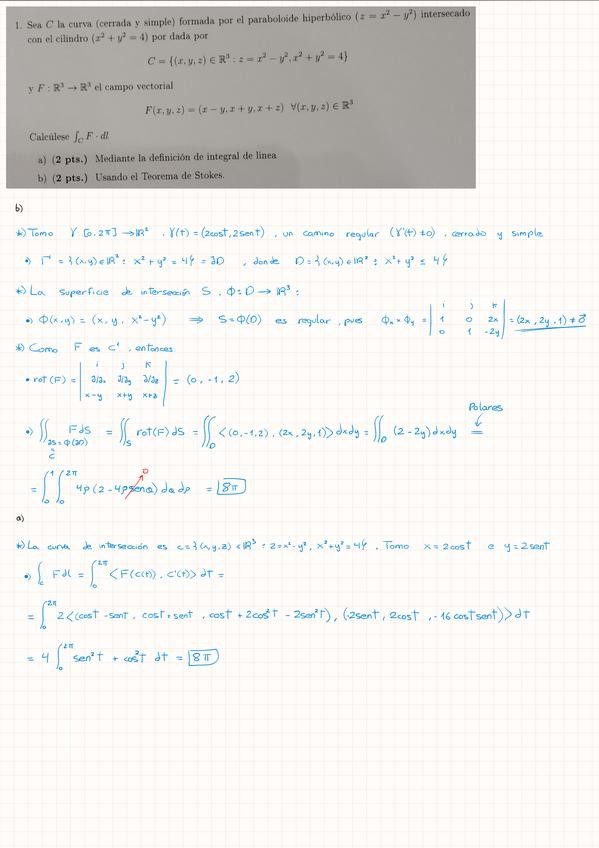 1. Sea C la curva (cerrada y simple) formada por el paraboloide hiperbólico (z = x² − y²) intersecado
con el cilindro (x² + y² = 4) por dada por
C = {(x, y, z) ∈ ℝ³ : z = x² − y², x² + y² = 4}
y F : ℝ³ → ℝ³ el campo vectorial
F(x, y, z) = (x − y, x + y, x + z) ∀(x, y, z) ∈ ℝ³
Calcúlese ∫_C F · dl
a) (2 pts.) Mediante la definición de integral de linea
b) (2 pts.) Usando el Teorema de Stokes.
b)
*) Tomo γ [0, 2π] → ℝ², γ(t) = (2cost, 2sent), un camino regular (γ'(t) ≠ 0), cerrado y simple
•) Γ = {(x,y) ∈ ℝ² : x² + y² = 4} = ∂D, donde D = {(x,y) ∈ ℝ² : x² + y² ≤ 4}
*) La superficie de intersección S, Φ: D → ℝ³ :
•) Φ(x,y) = (x, y, x² − y²) ⇒ S = Φ(D) es regular, pues Φx × Φy = | i j k ; 1 0 2x ; 0 1 -2y | = (2x, 2y, 1) ≠ 0⃗
*) Como F es C¹, entonces
• rot(F) = | i j k ; ∂/∂x ∂/∂y ∂/∂z ; x-y x+y x+z | = (0, -1, 2)
•) ∬_{∂S = Φ(∂D) = C} F dS = ∬_S rot(F) dS = ∬_D <(0, -1, 2), (2x, 2y, 1)> dxdy = ∬_D (2 - 2y) dxdy = Polares
= ∫₀¹ ∫₀^{2π} 4ρ (2 - 4ρ senθ) dθ dρ = 8π
a)
*) La curva de intersección es c = {(x, y, z) ∈ ℝ³ : z = x² - y², x² + y² = 4}. Tomo x = 2cost e y = 2sent
•) ∫_c F dl = ∫₀^{2π} <F(c(t)), c'(t)> dt =
= ∫₀^{2π} 2<(cost - sent, cost + sent, cost + 2cos²t - 2sen²t), (-2sent, 2cost, -16 cost sent)> dt
= 4 ∫₀^{2π} sen²t + cos²t dt = 8π